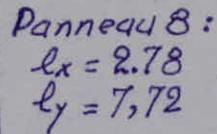 Panneau 8 :
lx = 2.78
ly = 7,72